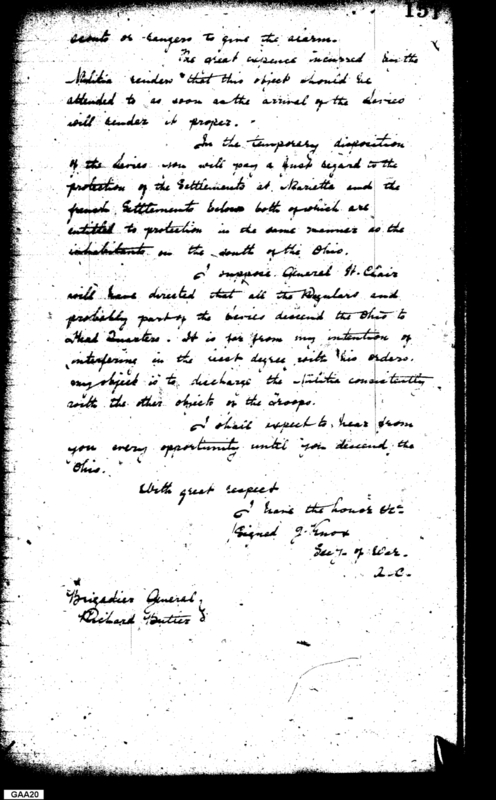 157
scouts or rangers to give the alarm.
The great expence incurred by the
Militia renders that this object should be
attended to as soon as the arrival of the Levies
will render it proper.
In the temporary disposition
of the Levies you will pay a just regard to the
protection of the Settlements at Marietta and the
french Settlements below both of which are
entitled to protection in the same manner as the
inhabitants on the south of the Ohio.
I suppose General St. Clair
will have directed that all the Regulars and
probably part of the Levies descend the Ohio to
Head Quarters. It is far from my intention of
interfering in the least degree with his orders.
my object is to discharge the Militia consistently
with the other objects of the troops.
I shall expect to hear from
you every opportunity until you descend the
Ohio.
With great respect
I have the honor &c
Signed J. Knox
Secy. of War.
Brigadier General
Richard Butler
GAA20